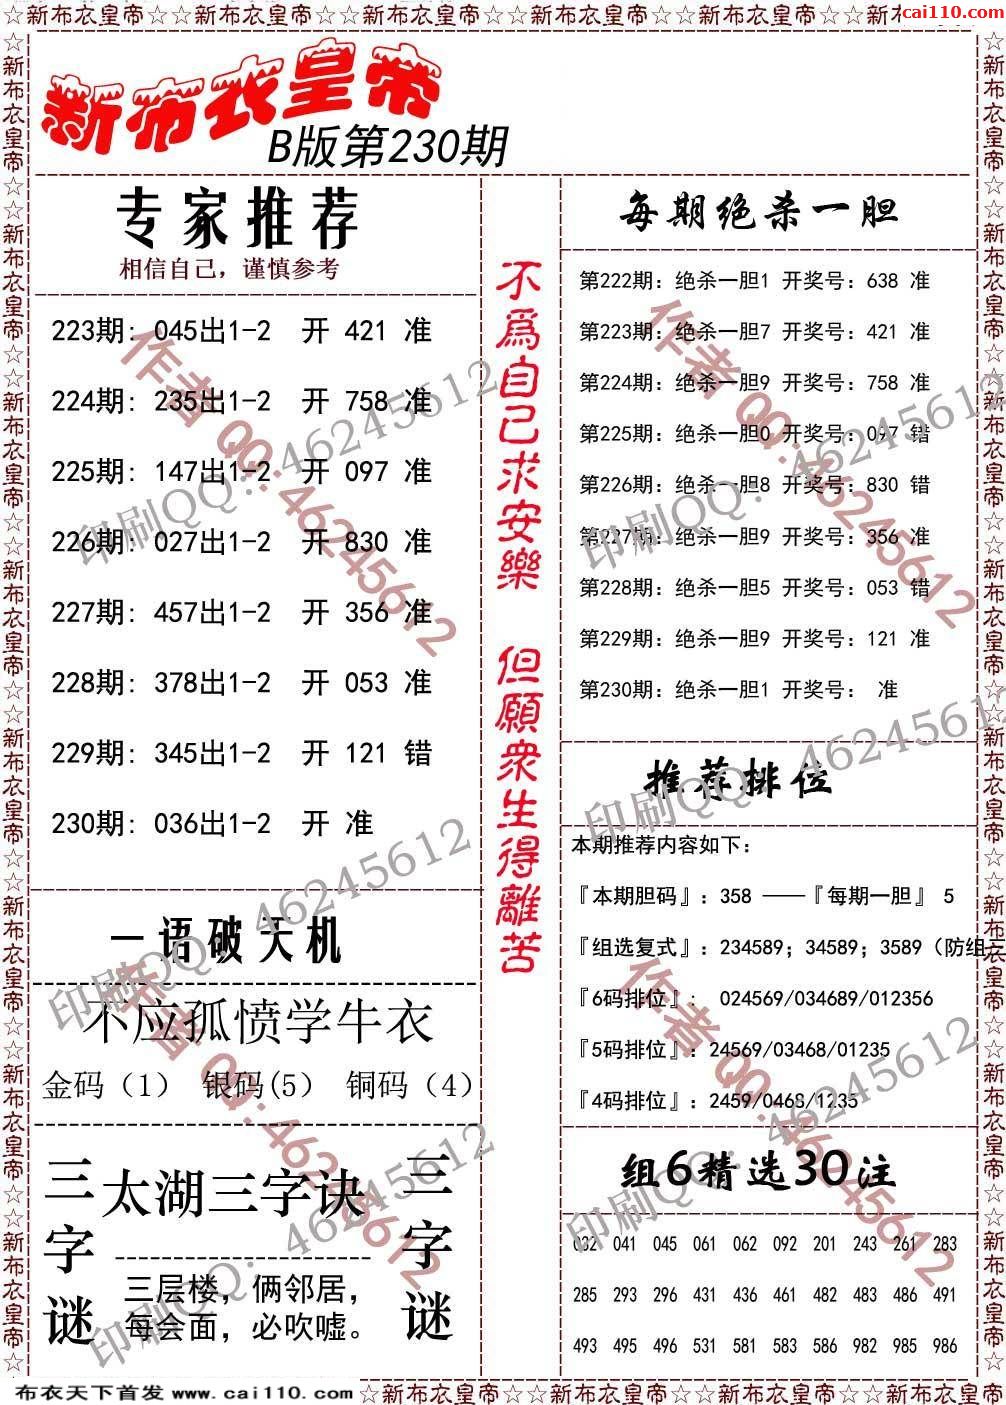 ☆新布衣皇帝☆☆新布衣皇帝☆☆新布衣皇帝☆☆新布衣皇帝☆☆新布衣皇帝☆☆新布衣皇帝☆☆新
cai110.com
新布衣皇帝
B版第230期
专家推荐
相信自己，谨慎参考
223期: 045出1-2 开 421 准
224期: 235出1-2 开 758 准
225期: 147出1-2 开 097 准
226期: 027出1-2 开 830 准
227期: 457出1-2 开 356 准
228期: 378出1-2 开 053 准
229期: 345出1-2 开 121 错
230期: 036出1-2 开 准
一语破天机
不应孤愤学牛衣
金码（1） 银码(5） 铜码（4）
三字谜
太湖三字诀
三层楼，俩邻居，
每会面，必吹嘘。
三字谜
不爲自己求安樂 但願衆生得離苦
每期绝杀一胆
第222期: 绝杀一胆1 开奖号: 638 准
第223期: 绝杀一胆7 开奖号: 421 准
第224期: 绝杀一胆9 开奖号: 758 准
第225期: 绝杀一胆0 开奖号: 097 错
第226期: 绝杀一胆8 开奖号: 830 错
第227期: 绝杀一胆9 开奖号: 356 准
第228期: 绝杀一胆5 开奖号: 053 错
第229期: 绝杀一胆9 开奖号: 121 准
第230期: 绝杀一胆1 开奖号: 准
推荐排位
本期推荐内容如下:
『本期胆码』: 358 ——『每期一胆』 5
『组选复式』: 234589; 34589; 3589（防组三
『6码排位』: 024569/034689/012356
『5码排位』: 24569/03468/01235
『4码排位』: 2459/0468/1235
组6精选30注
032 041 045 061 062 092 201 243 261 283
285 293 296 431 436 461 482 483 486 491
493 495 496 531 581 583 586 982 985 986
作者 QQ: 46245612
印刷QQ: 46245612
作者 QQ: 46245612
印刷QQ: 46245612
印刷QQ: 46245612
印刷QQ: 46245612
作者 QQ: 46245612
印刷QQ: 46245612
作者 QQ: 46245612
印刷QQ: 46245612
☆新布衣皇帝☆☆新布衣皇帝☆☆新布衣皇帝☆☆新布衣皇帝☆☆新布衣皇帝☆☆新布衣皇帝☆☆新布衣皇帝☆☆新布衣皇帝☆
☆新布衣皇帝☆☆新布衣皇帝☆☆新布衣皇帝☆☆新布衣皇帝☆☆新布衣皇帝☆☆新布衣皇帝☆☆新布衣皇帝☆☆新布衣皇帝☆
布衣天下首发 www.cai110.com
☆新布衣皇帝☆☆新布衣皇帝☆☆新布衣皇帝☆☆新布衣皇帝☆